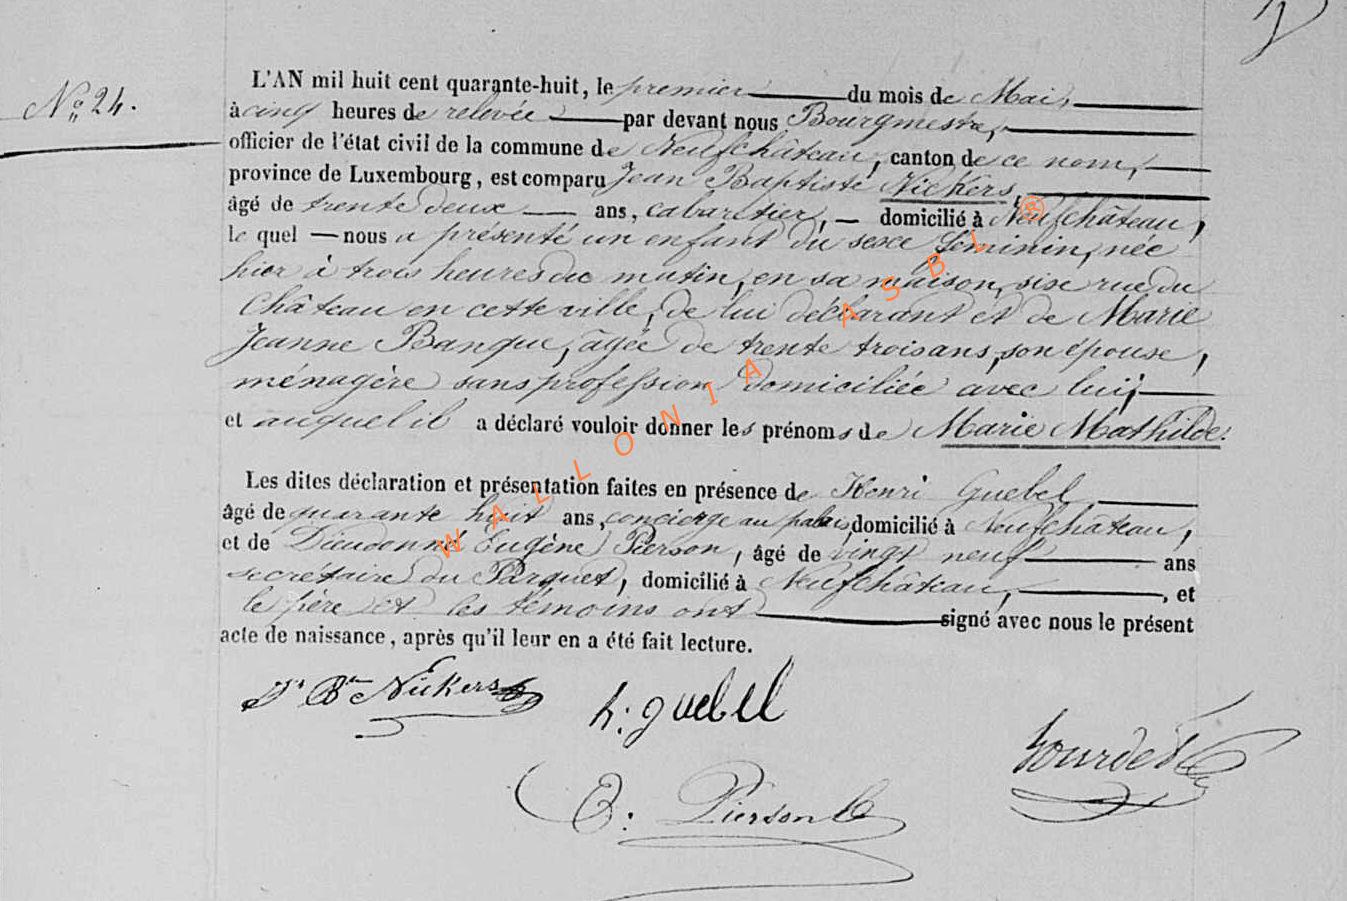 N° 24.
L'AN mil huit cent quarante-huit, le premier du mois de Mai,
à cinq heures de relevée par devant nous Bourgmestre,
officier de l'état civil de la commune de Neufchâteau, canton de ce nom,
province de Luxembourg, est comparu Jean Baptiste Nickers,
âgé de trente deux ans, cabaretier, domicilié à Neufchâteau,
le quel nous a présenté un enfant du sexe féminin, née
hier à trois heures du matin, en sa maison, sise rue du
Château en cette ville, de lui déclarant et de Marie
Jeanne Banque, âgée de trente trois ans, son épouse,
ménagère sans profession domiciliée avec lui;
et auquel il a déclaré vouloir donner les prénoms de Marie Mathilde.
Les dites déclaration et présentation faites en présence de Henri Guebel
âgé de quarante huit ans, concierge au palais, domicilié à Neufchâteau,
et de Dieudonné Eugène Pierson, âgé de vingt neuf ans
secrétaire du Parquet, domicilié à Neufchâteau, et
le père et les témoins ont signé avec nous le présent
acte de naissance, après qu'il leur en a été fait lecture.
Jn Bte Nickers
h: guebel
Gourdet
E: Pierson
WALLONIA ASBL ®